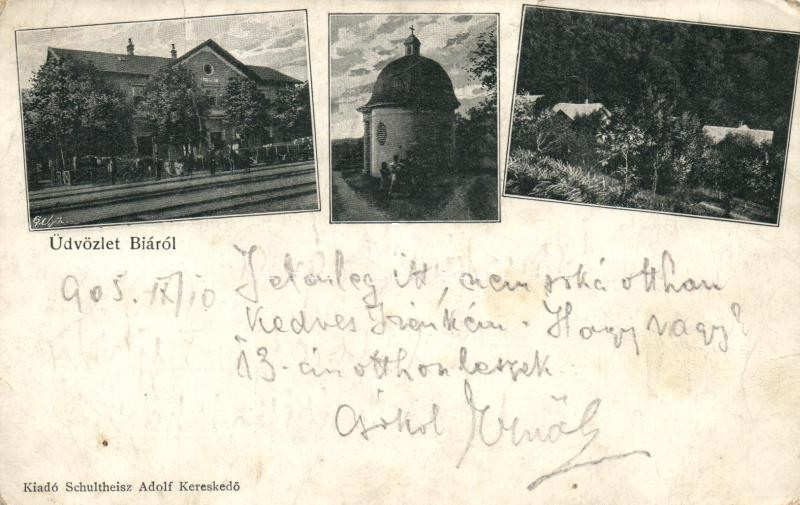 Üdvözlet Biáról
905. IX/10
Jelenleg itt, nem soká otthan
Kedves Irénkém. Hogy vagy?
13-án otthon leszek
Csókol Ernő
Kiadó Schultheisz Adolf Kereskedő